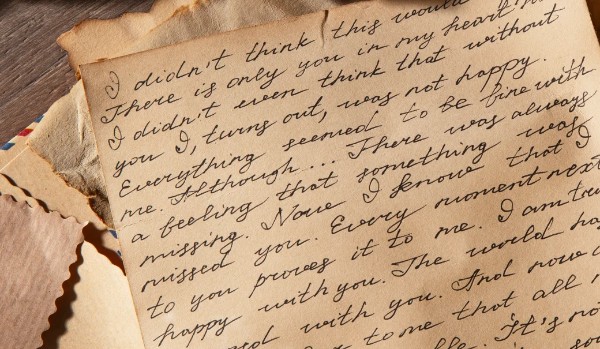 I didn't think this would
There is only you in my heart
I didn't even think that without
you I, turns out, was not happy.
Everything seemed to be fine with
me. Although... There was always
a feeling that something was
missing. Now I know that I
missed you. Every moment next
to you proves it to me. I am
happy with you. The world has
with you. And now
to me that all
It's